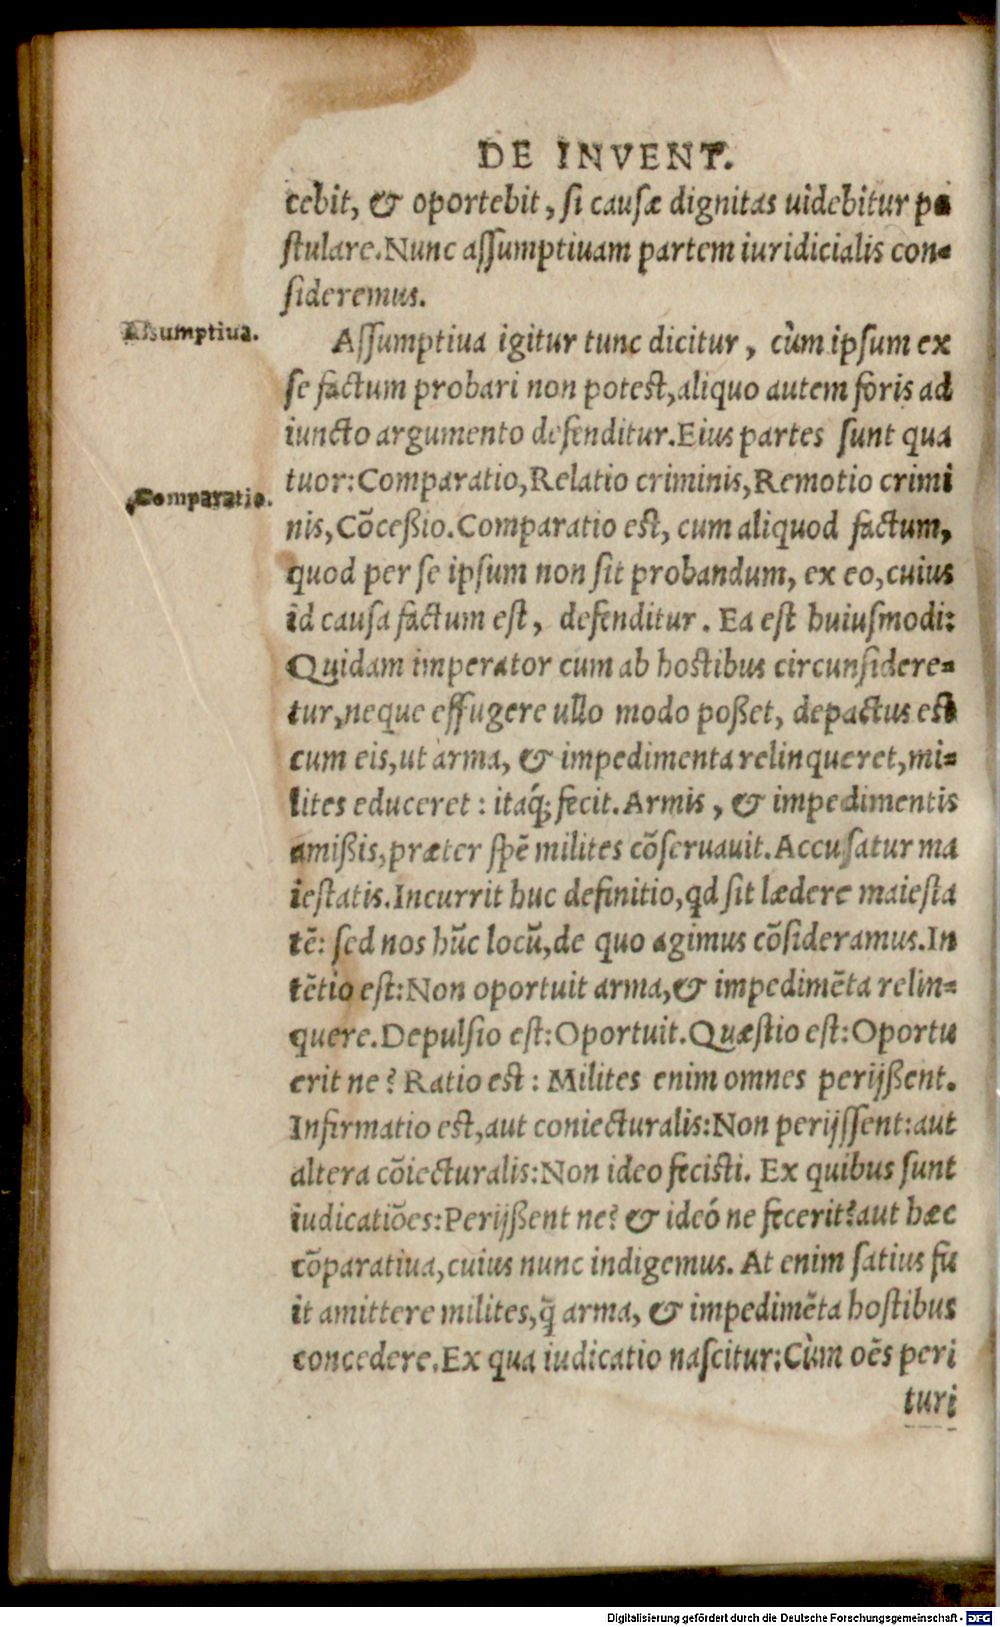 DE INVENT.
cebit, & oportebit, si causæ dignitas uidebitur po
stulare. Nunc assumptiuam partem iuridicialis con-
sideremus.
Assumptiua.
Assumptiua igitur tunc dicitur, cùm ipsum ex
se factum probari non potest, aliquo autem foris ad
iuncto argumento defenditur. Eius partes sunt qua
tuor: Comparatio, Relatio criminis, Remotio crimi
Comparatio.
nis, Cōceßio. Comparatio est, cum aliquod factum,
quod per se ipsum non sit probandum, ex eo, cuius
id causa factum est, defenditur. Ea est huiusmodi:
Quidam imperator cum ab hostibus circunsidere-
tur, neque effugere ullo modo poßet, depactus est
cum eis, ut arma, & impedimenta relinqueret, mi-
lites educeret: itaq́; fecit. Armis, & impedimentis
amißis, præter spē milites cōseruauit. Accusatur ma
iestatis. Incurrit huc definitio, qd sit lædere maiesta
tē: sed nos hūc locū, de quo agimus cōsideramus. In
tētio est: Non oportuit arma, & impedimēta relin-
quere. Depulsio est: Oportuit. Quæstio est: Oportu
erit ne? Ratio est: Milites enim omnes perijßent.
Infirmatio est, aut coniecturalis: Non perijssent: aut
altera cōiecturalis: Non ideo fecisti. Ex quibus sunt
iudicatiōes: Perijßent ne? & ideó ne fecerit? aut hæc
cōparatiua, cuius nunc indigemus. At enim satius fu
it amittere milites, q̄ arma, & impedimēta hostibus
concedere. Ex qua iudicatio nascitur: Cùm oēs peri
turi
Digitalisierung gefördert durch die Deutsche Forschungsgemeinschaft - DFG